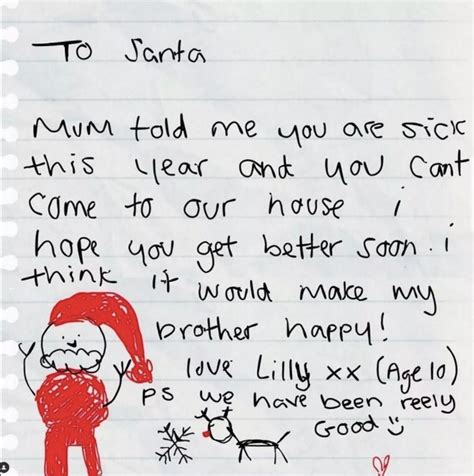 To Santa
Mum told me you are sick
this year and you cant
come to our house i
hope you get better soon. i
think it would make my
brother happy!
love Lilly xx (Age 10)
PS we have been reely
Good